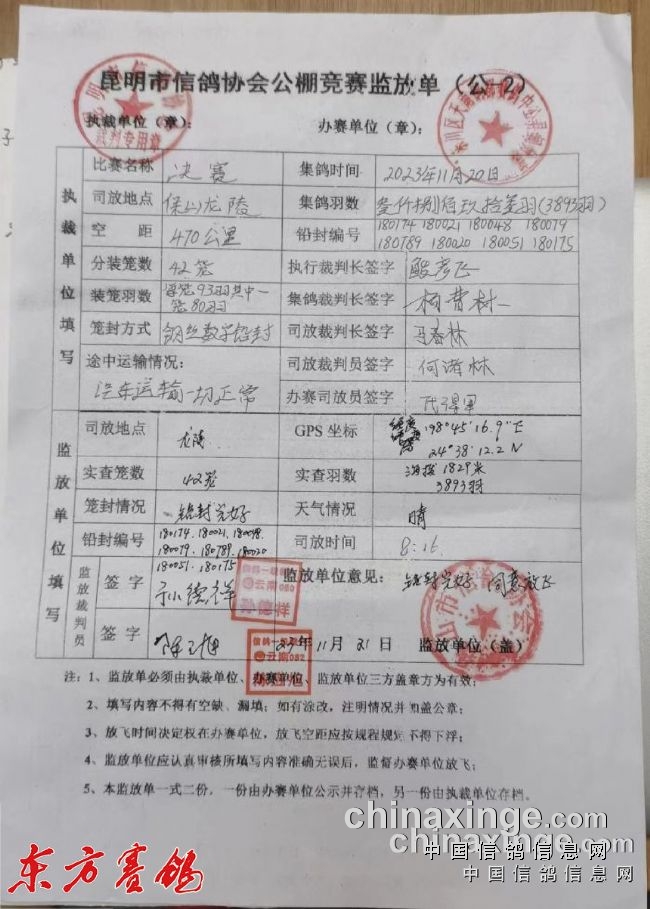 昆明市信鸽协会公棚竞赛监放单（公 2）
执裁单位（章）： 办赛单位（章）：
裁判专用章
执裁单位填写
比赛名称 决赛 集鸽时间 2023年11月20日
司放地点 保山龙陵 集鸽羽数 叁仟捌佰玖拾叁羽(3893羽)
空 距 470公里 铅封编号 180174 180021 180048 180079
180789 180020 180051 180175
分装笼数 42笼 执行裁判长签字
装笼羽数 每笼93羽其中一
笼80羽 集鸽裁判长签字
笼封方式 钢丝数字铅封 司放裁判长签字 马春林
途中运输情况： 司放裁判员签字 何诸林
汽车运输一切正常 办赛司放员签字
监放单位填写
司放地点 龙陵 GPS 坐标 98°45'16.9"E
24°38'12.2 N
实查笼数 42笼 实查羽数 海拔1829米
3893羽
笼封情况 铅封完好 天气情况 晴
铅封编号 180174.180021.180048.
180079.180789.180020
180051.180175 司放时间 8:16
监放裁判员
签 字 孙德祥 监放单位意见： 铅封完好 同意放飞
签 字 23年11月21日 监放单位（盖）
云南080
孙德祥
云南082
注：1、监放单必须由执裁单位、办赛单位、监放单位三方盖章方为有效；
2、填写内容不得有空缺、漏填；如有涂改，注明情况并加盖公章；
3、放飞时间决定权在办赛单位，放飞空距应按规程规定不得下浮；
4、监放单位应认真审核所填写内容准确无误后，监督办赛单位放飞；
5、本监放单一式二份，一份由办赛单位公示并存档，另一份由执裁单位存档。
chinaxinge.com
chinaxinge.com
中国信鸽信息网
中国信鸽信息网
东方赛鸽